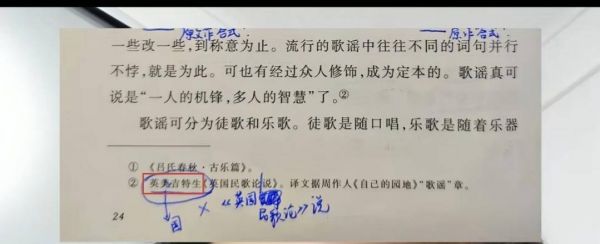 原文作合式.
原作合式.
一些改一些，到称意为止。流行的歌谣中往往不同的词句并行
不悖，就是为此。可也有经过众人修饰，成为定本的。歌谣真可
说是“一人的机锋，多人的智慧”了。②
歌谣可分为徒歌和乐歌。徒歌是随口唱，乐歌是随着乐器
① 《吕氏春秋·古乐篇》。
② 英美吉特生《英国民歌论说》。译文据周作人《自己的园地》“歌谣”章。
国 × 《英国
民歌论》说
24